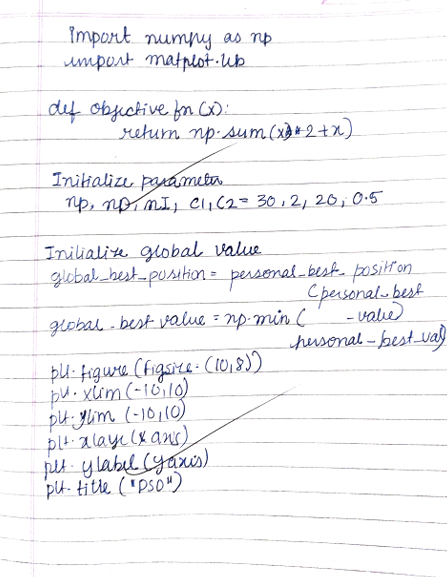 Import numpy as np
import matplot.lib
def objective fn (x):
return np.sum(x**2+x)
Initialize parameter
np, np, nI, C1, C2 = 30, 2, 20, 0.5
Initialize global value
global_best_position = personal_best_position
(personal_best
global_best value = np.min ( -value)
personal_best_val)
plt.figure (figsize. (10,8))
plt.xlim (-10,10)
plt.ylim (-10,10)
plt.xlaye (x axis)
plt.ylabel (y axis)
plt.title ("PSO")